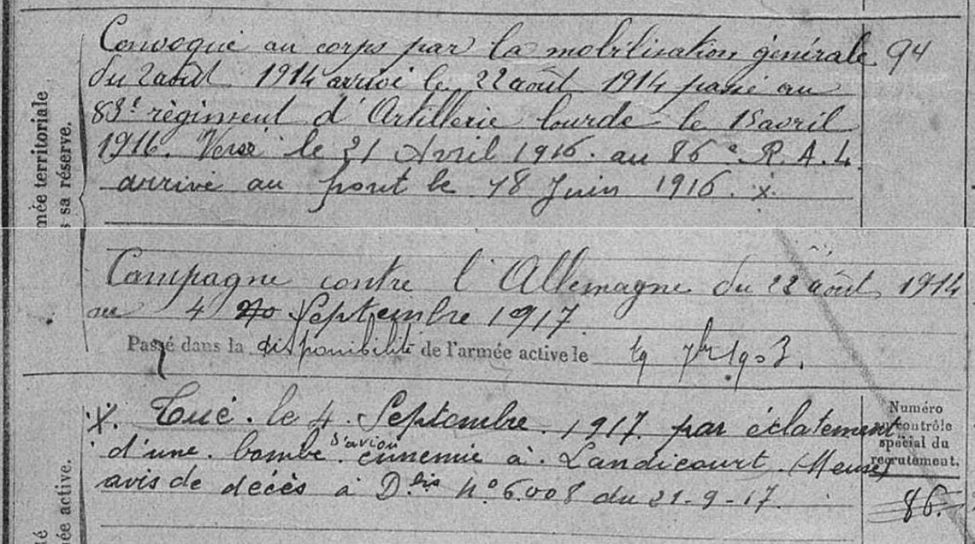 Convoqué au corps par la mobilisation générale 94
du 2 août 1914 arrivé le 22 août 1914 passé au
83e régiment d'Artillerie lourde le 15 avril
1916. Versé le 21 Avril 1916. au 86e R.A.L.
arrivé au front le 18 Juin 1916. x.
mée territoriale
sa réserve.
Campagne contre l'Allemagne du 22 août 1914
au 4 Septembre 1917
Passé dans la disponibilité de l'armée active le 19 7bre 1903.
x. Tué. le 4. Septembre. 1917. par éclatement
d'une. bombe d'avion ennemie à. Landicourt. (Meuse)
avis de décès à Don No 6.008 du 21-9-17.
ée active.
Numéro
contrôle
spécial du
recrutement.
86.